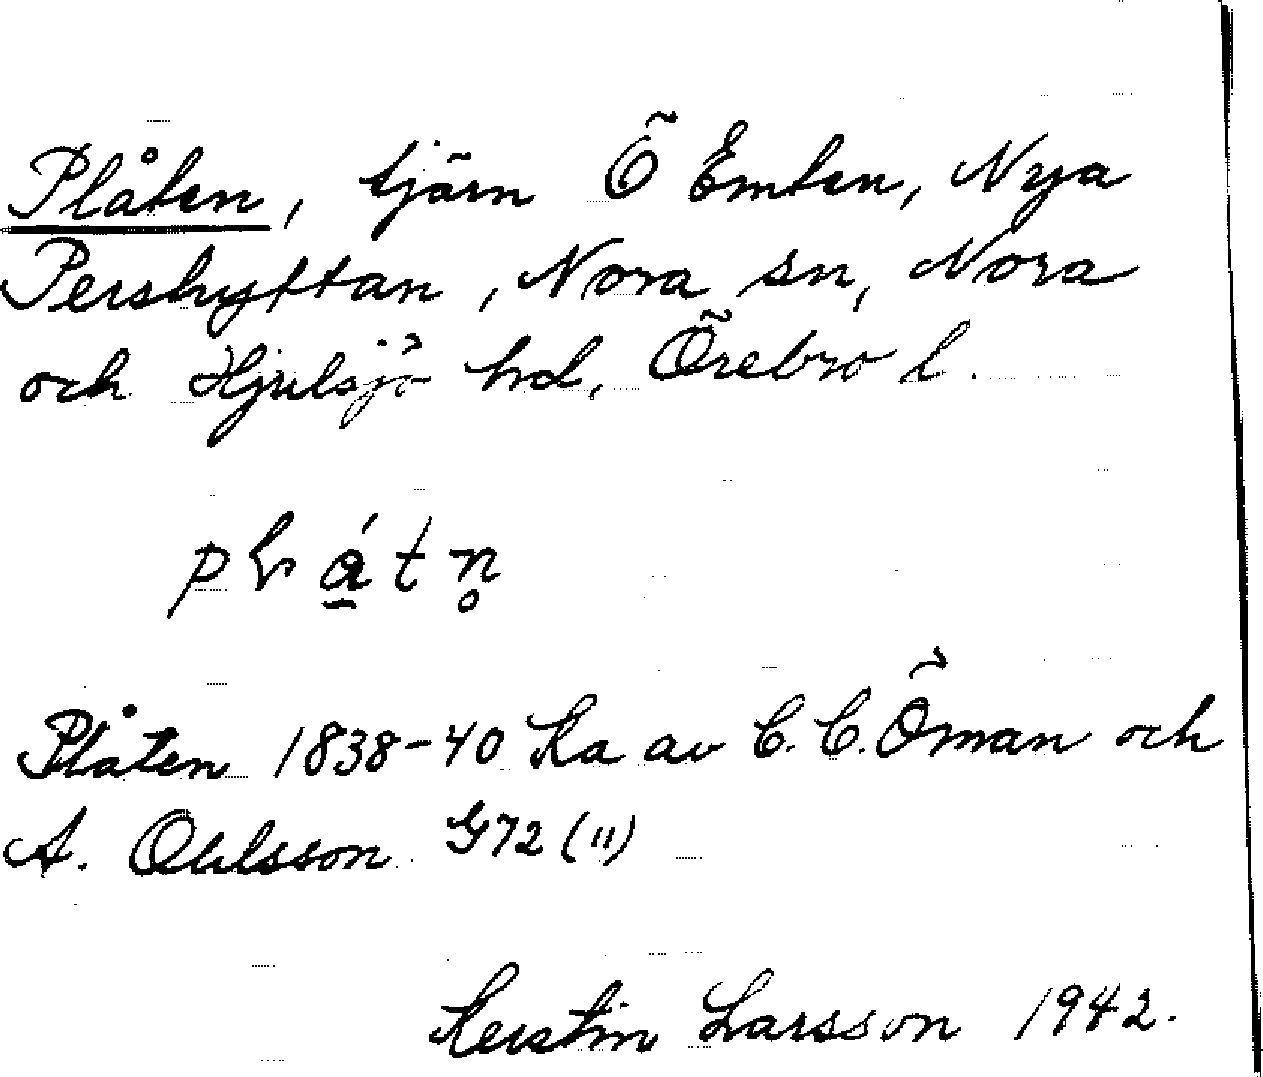 Plåten, tjärn Ö Emten, Nya
Pershyttan, Nora sn, Nora
och Hjulsjö hd, Örebro l.
Plåten 1838-40 Ka av C. C. Öman och
A. Ohlsson G72 (")
Kerstin Larsson 1942.